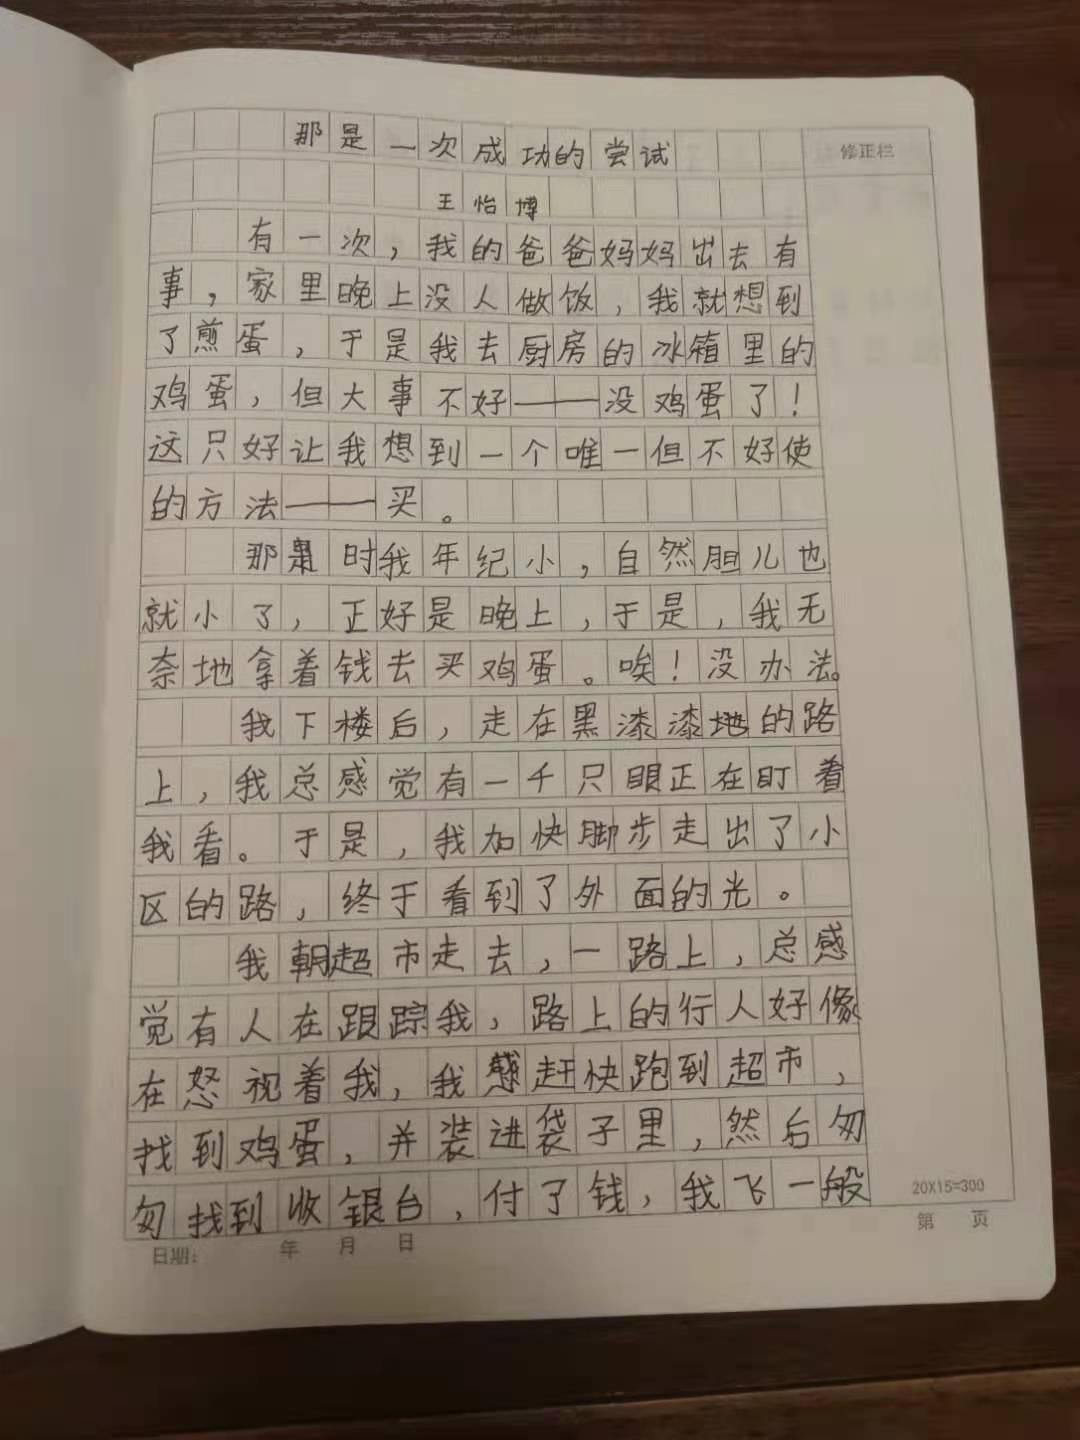 那是一次成功的尝试
修正栏
王怡博
有一次，我的爸爸妈妈出去有
事，家里晚上没人做饭，我就想到
了煎蛋，于是我去厨房的冰箱里的
鸡蛋，但大事不好——没鸡蛋了！
这只好让我想到一个唯一但不好使
的方法——买。
那时我年纪小，自然胆儿也
就小了，正好是晚上，于是，我无
奈地拿着钱去买鸡蛋。唉！没办法。
我下楼后，走在黑漆漆地的路
上，我总感觉有一千只眼正在盯着
我看。于是，我加快脚步走出了小
区的路，终于看到了外面的光。
我朝超市走去，一路上，总感
觉有人在跟踪我，路上的行人好像
在怒视着我，我赶快跑到超市，
找到鸡蛋，并装进袋子里，然后匆
匆找到收银台，付了钱，我飞一般
20X15=300
日期： 年 月 日
第 页